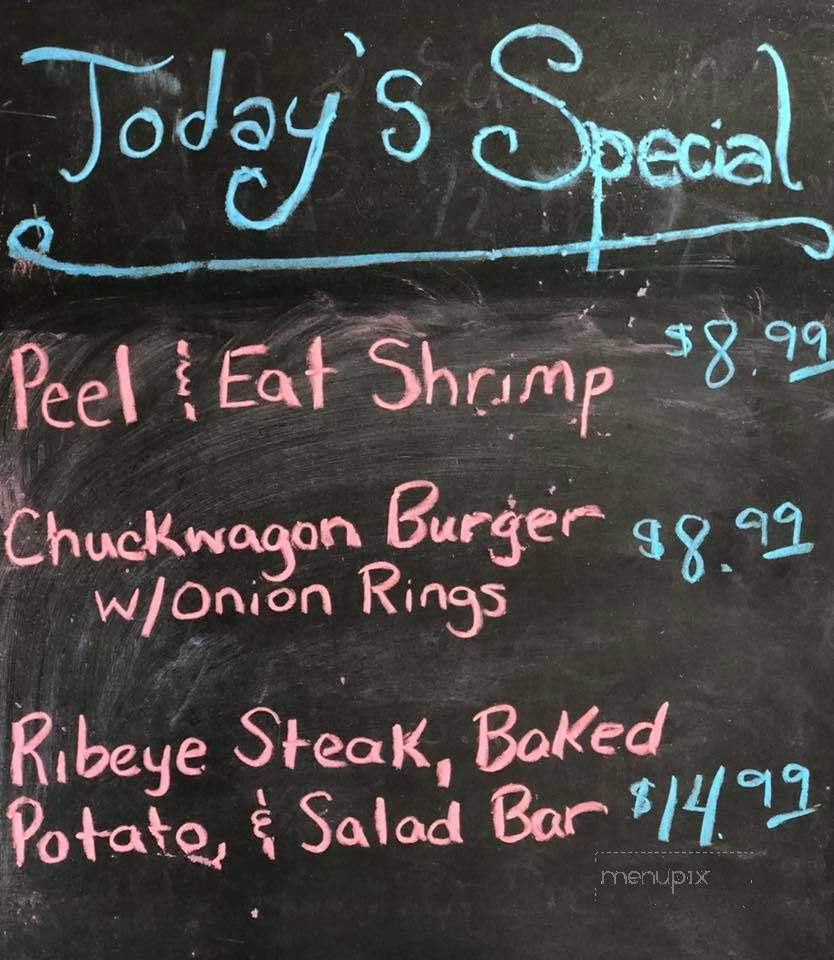 Today's Special
Peel & Eat Shrimp $8.99
Chuckwagon Burger $8.99
w/Onion Rings
Ribeye Steak, Baked
Potato, & Salad Bar $14.99
menupix